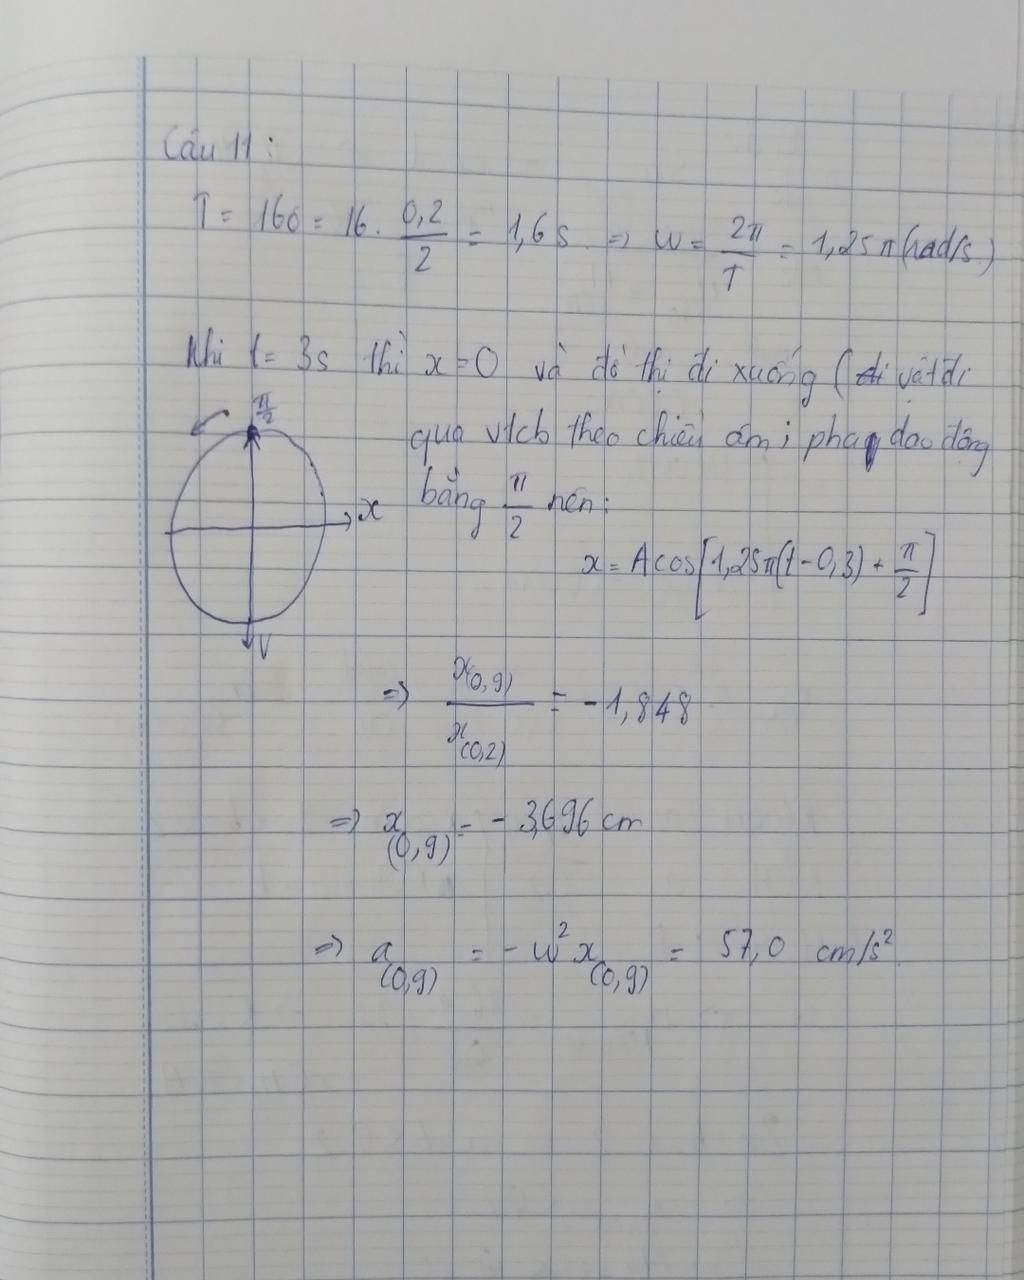 Câu 11:
T = 16ô = 16. 0,2/2 = 1,6s => ω = 2π/T = 1,25π(rad/s)
Khi t = 3s thì x = 0 và đồ thị đi xuống (vật đi
π/2
qua vtcb theo chiều âm; pha dao động
x
bằng π/2 nên:
x = Acos[1,25π(t - 0,3) + π/2]
v
=> x(0,9)/x(0,2) = -1,848
=> x(0,9) = - 3,696 cm
=> a(0,9) = - ω²x(0,9) = 57,0 cm/s²